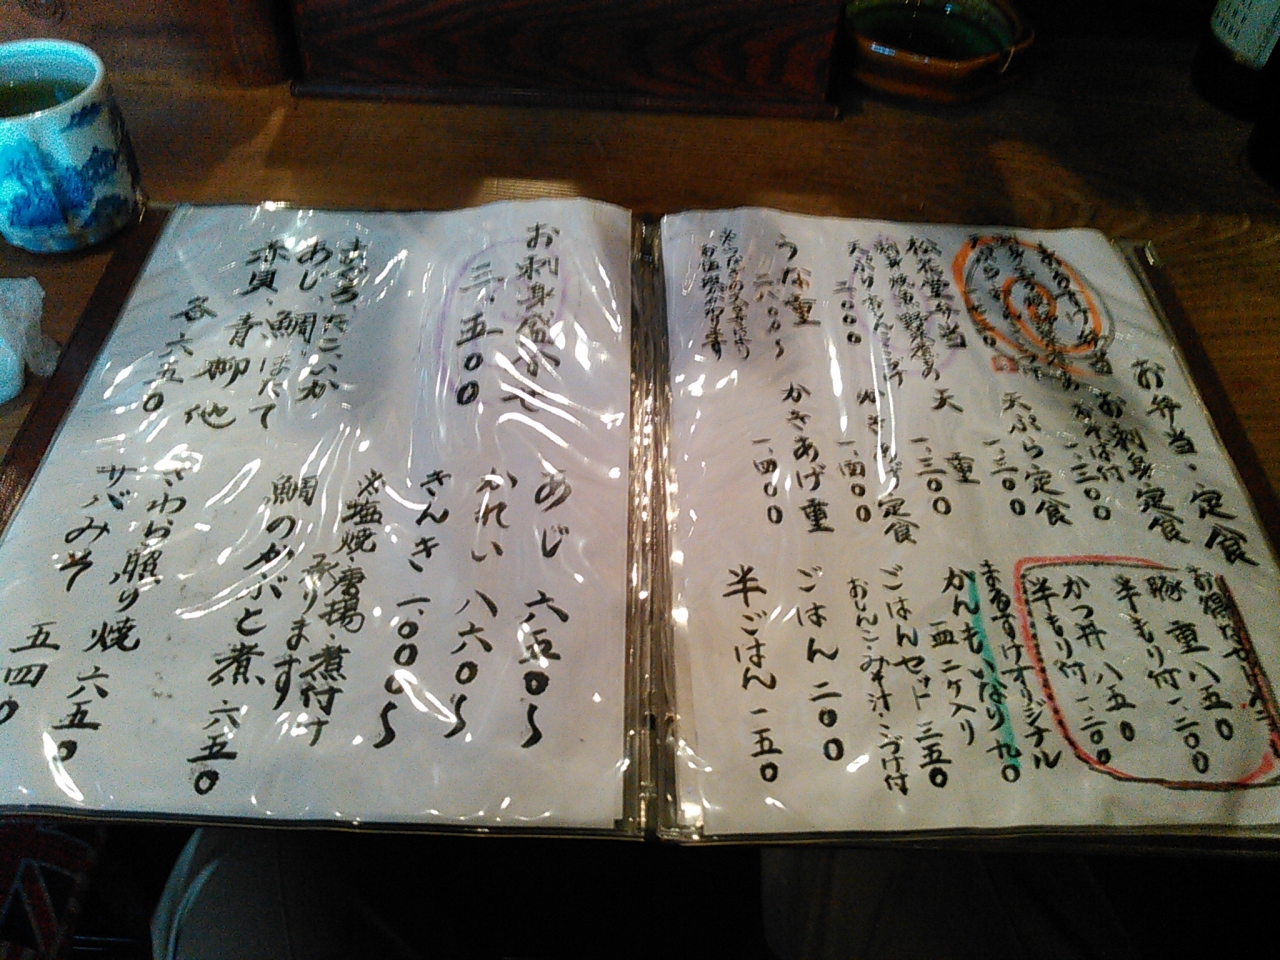 お弁当・定食
まるすけ弁当
お刺身定食
おそば付
一、三〇〇
天ぷら定食
一、三〇〇
松花堂弁当
二、〇〇〇
天重
一、三〇〇
かきあげ定食
一、四〇〇
うな重
二八〇〇〜
かきあげ重
一、四〇〇
豚重 八五〇
半もり付 一、二〇〇
かつ丼 八五〇
半もり付 一、二〇〇
まるすけオリジナル
かんもいなり 九〇
一皿二ケ入り
ごはんセット 三五〇
おしんこ・みそ汁・こづけ付
ごはん 二〇〇
半ごはん 一五〇
お刺身盛合せ
三、五〇〇
まぐろ、たこ、いか
あじ、鯛、ほたて
赤貝、青柳 他
各六五〇
あじ 六五〇〜
かれい 八六〇〜
きんき 一、〇〇〇〜
※塩焼・唐揚・煮付け
承ります
鯛のかぶと煮 六五〇
さわら照り焼 六五〇
サバみそ 五四〇